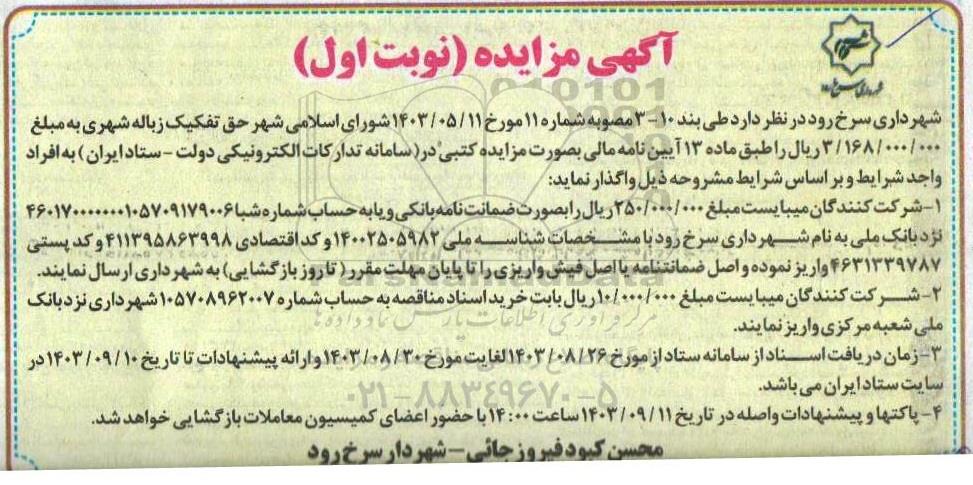 آگهی مزایده (نوبت اول)
شهرداری سرخ رود
شهرداری سرخ رود در نظر دارد طی بند ۱۰-۳ مصوبه شماره ۱۱ مورخ ۱۴۰۳/۰۵/۱۱ شورای اسلامی شهر حق تفکیک زباله شهری به مبلغ
۳/۱۶۸/۰۰۰/۰۰۰ ریال را طبق ماده ۱۳ آیین نامه مالی بصورت مزایده کتبی در (سامانه تدارکات الکترونیکی دولت - ستاد ایران) به افراد
واجد شرایط و بر اساس شرایط مشروحه ذیل واگذار نماید:
۱-شرکت کنندگان میبایست مبلغ ۲۵۰/۰۰۰/۰۰۰ ریال را بصورت ضمانت نامه بانکی و یا به حساب شماره شبا ۴۶۰۱۷۰۰۰۰۰۰۰۱۰۵۷۰۹۱۷۹۰۰۶
نزد بانک ملی به نام شهرداری سرخ رود با مشخصات شناسه ملی ۱۴۰۰۲۵۰۵۹۸۲ و کد اقتصادی ۴۱۱۳۹۵۸۶۳۹۹۸ و کد پستی
۴۶۳۱۳۳۹۷۸۷ واریز نموده و اصل ضمانتنامه یا اصل فیش واریزی را تا پایان مهلت مقرر (تا روز بازگشایی) به شهرداری ارسال نمایند.
۲-شرکت کنندگان میبایست مبلغ ۱۰/۰۰۰/۰۰۰ ریال بابت خرید اسناد مناقصه به حساب شماره ۱۰۵۷۰۸۹۶۲۰۰۷ شهرداری نزد بانک
ملی شعبه مرکزی واریز نمایند.
۳-زمان دریافت اسناد از سامانه ستاد از مورخ ۱۴۰۳/۰۸/۲۶ لغایت مورخ ۱۴۰۳/۰۸/۳۰ و ارائه پیشنهادات تا تاریخ ۱۴۰۳/۰۹/۱۰ در
سایت ستاد ایران می باشد.
۴- پاکتها و پیشنهادات واصله در تاریخ ۱۴۰۳/۰۹/۱۱ ساعت ۱۴:۰۰ با حضور اعضای کمیسیون معاملات بازگشایی خواهد شد.
محسن کبود فیروزجائی - شهردار سرخ رود
مرکز فرآوری اطلاعات پارس نماد داده ها
۰۲۱-۸۸۳۴۹۶۷۰-۵